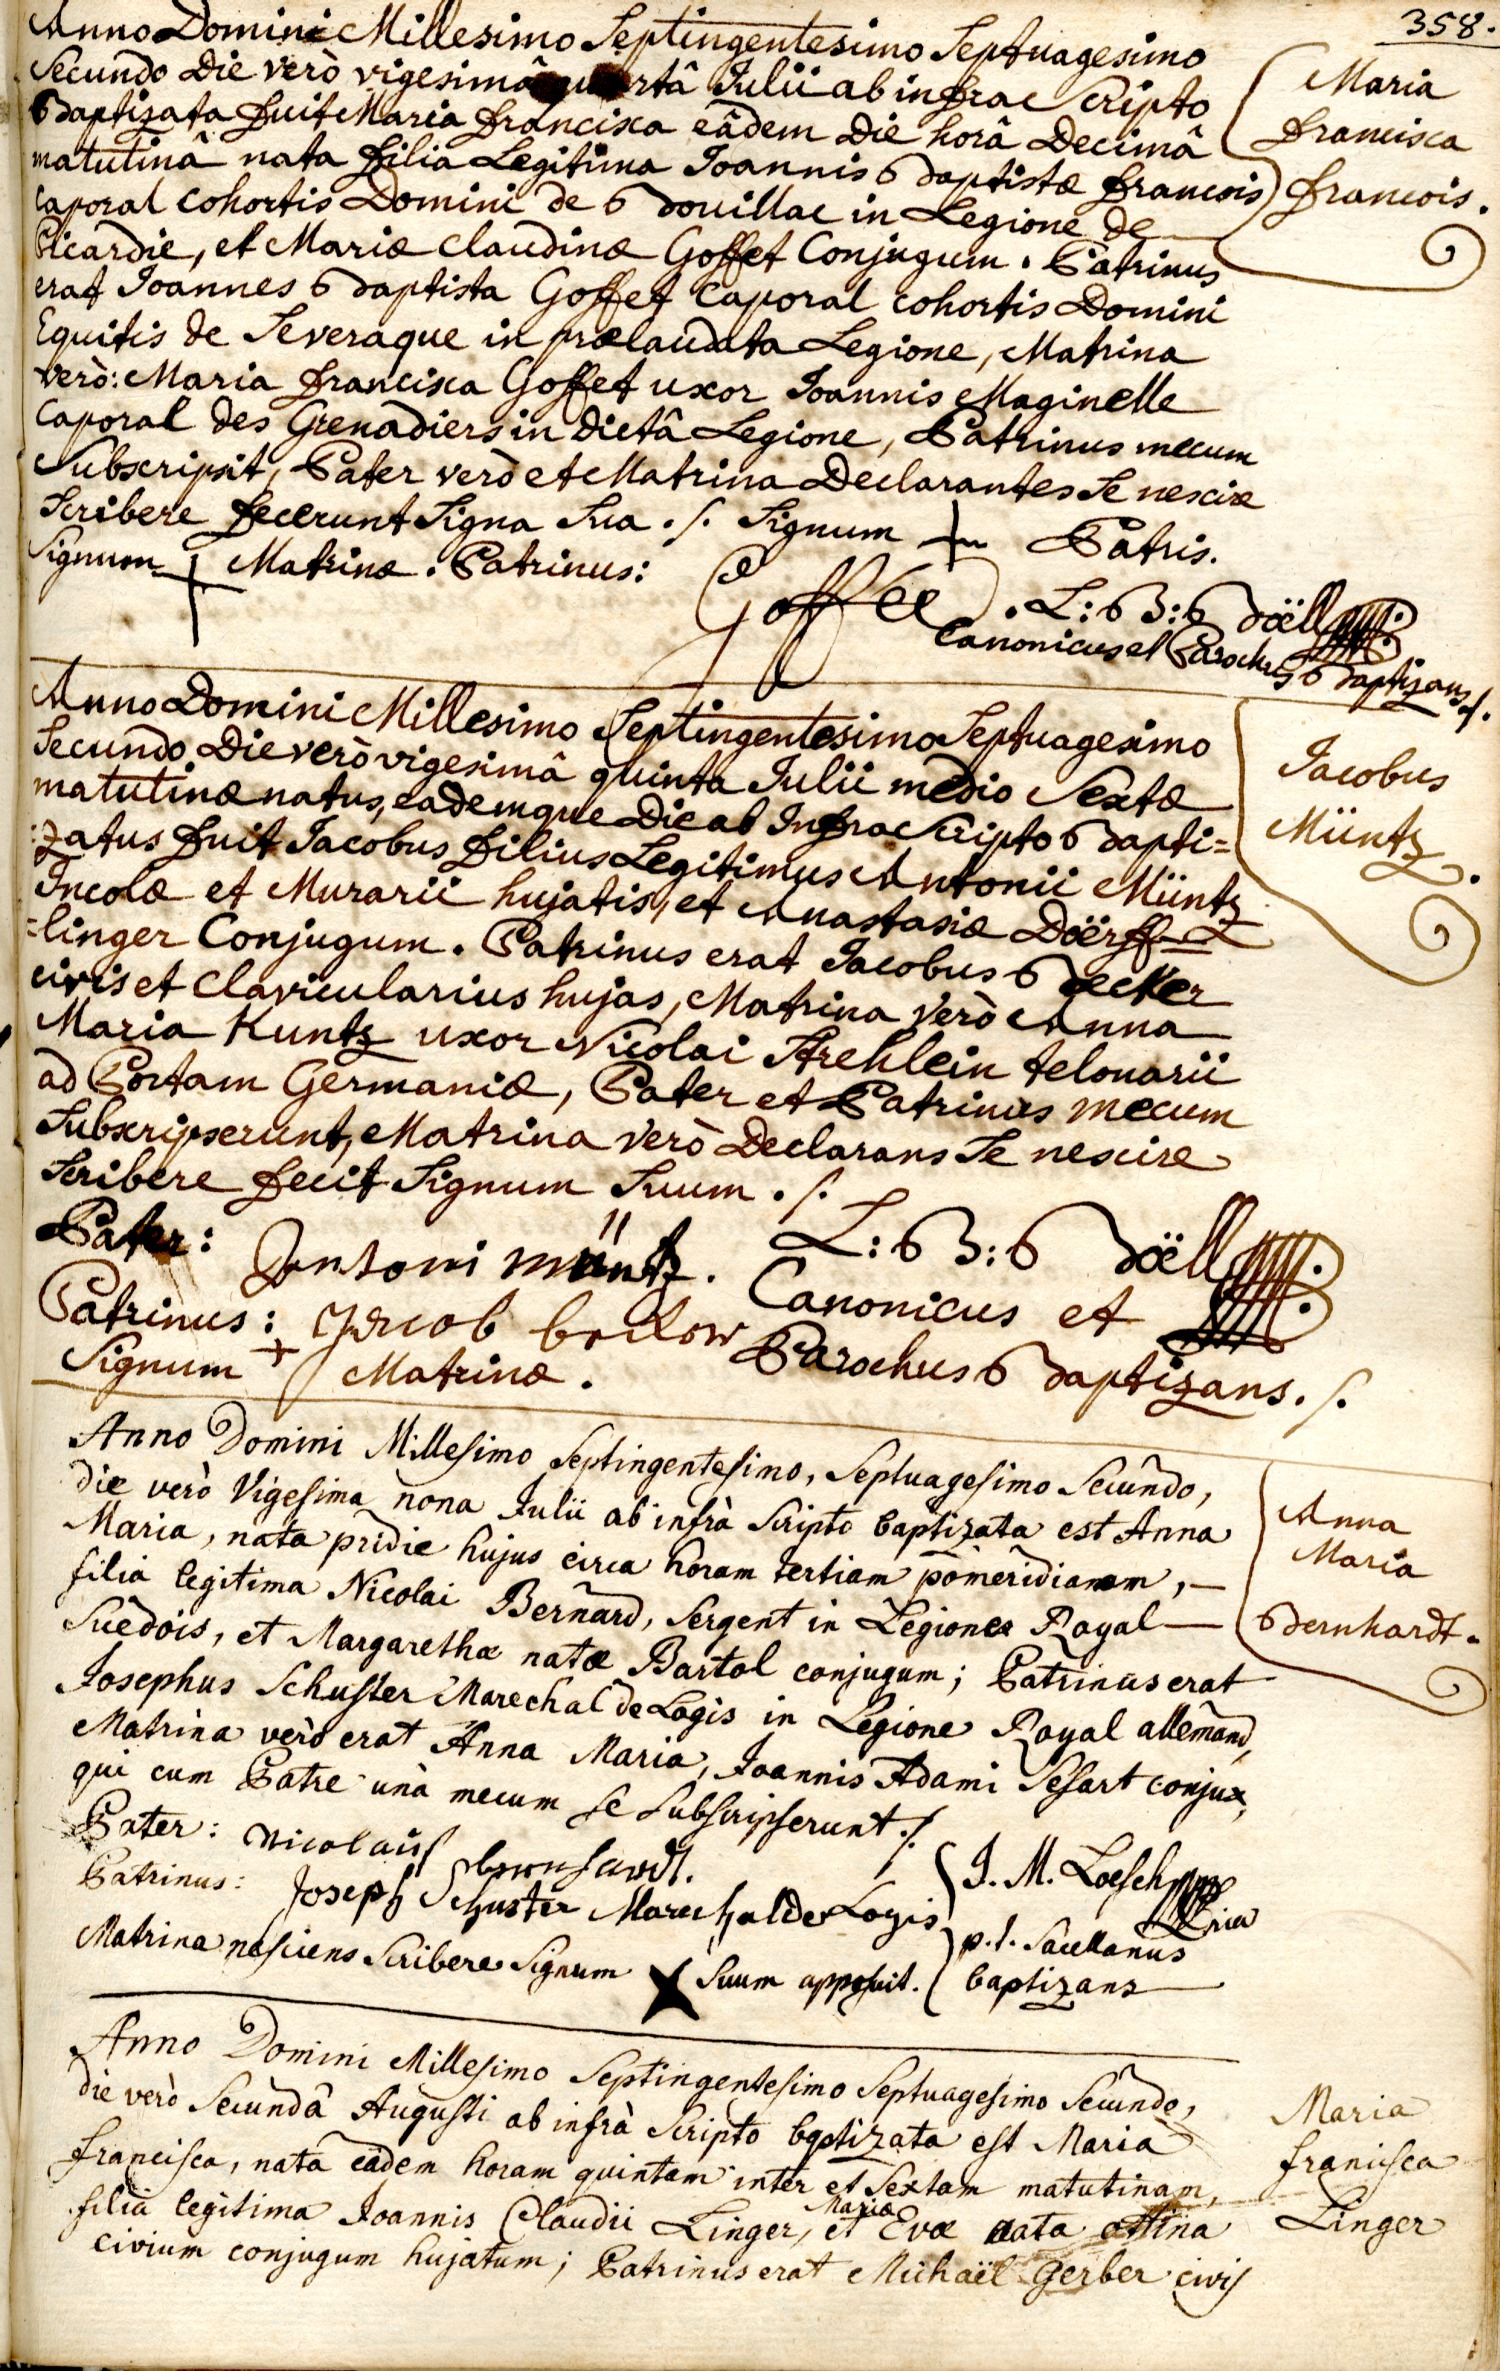 358.
Anno Domini Millesimo Septingentesimo Septuagesimo
Secundo Die verò vigesimâ quartâ Julii ab infrascripto
Baptizata fuit Maria Francisca eâdem Die horâ Decimâ
matutinâ nata filia Legitima Joannis Baptistæ Francois
Caporal Cohortis Domini de Bouillac in Legione de
Picardie, et Mariæ Claudinæ Goffet Conjugum. Patrinus
erat Joannes Baptista Goffet Caporal cohortis Domini
Equitis de Severaque in prælaudata Legione, Matrina
verò: Maria Francisca Goffet uxor Joannis Maginelle
Caporal des Grenadiers in dictâ Legione, Patrinus mecum
Subscripsit, Pater verò et Matrina Declarantes Se nescire
Scribere fecerunt Signa Sua ./. Signum + Patris.
Signum + Matrinæ. Patrinus:
Maria
Francisca
Francois.
Goffee . L: B: Boëll
Canonicus et Parochus Baptizans ./.
Anno Domini Millesimo Septingentesimo Septuagesimo
Secundo Die verò vigesimâ quinta Julii medio Sextæ
matutinæ natus, eademque Die ab Infrascripto Bapti=
:zatus fuit Jacobus filius Legitimus Antonii Müntz
Incolæ et Murarii hujatis, et Anastasiæ Döerff=
=linger Conjugum. Patrinus erat Jacobus Becker
civis et Clavicularius hujas, Matrina verò Anna
Maria Kuntz uxor Nicolai Strehlein telonarii
ad Portam Germaniæ, Pater et Patrinus mecum
Subscripserunt, Matrina verò Declarans Se nescire
Scribere fecit Signum Suum ./.
Jacobus
Müntz.
Pater: Antoni müntz. L: B: Boëll
Patrinus: Jacob becker Canonicus et
Signum + Matrinæ. Parochus Baptizans ./.
Anno Domini Millesimo Septingentesimo, Septuagesimo Secundo,
die verò Vigesima nona Julii ab infrà Scripto baptizata est Anna
Maria, nata pridie hujus circa horam tertiam pomeridianam, —
filia legitima Nicolai Bernard, Sergent in Legione Royal —
Suedois, et Margarethæ natæ Bartol conjugum; Patrinus erat
Josephus Schuster Marechal de Logis in Legione Royal allemand,
Matrina verò erat Anna Maria, Joannis Adami Sesart conjux,
qui cum Patre unà mecum se Subscripserunt ./.
Anna
Maria
Bernhardt.
Pater: Nicolaus bernhardt.
Patrinus: Joseph Schuster Marechal de Logis
Matrina nesciens Scribere Signum X Suum apposuit.
J. M. Loesch
p. t. Sacellanus
baptizans
Anno Domini Millesimo Septingentesimo Septuagesimo Secundo,
die verò Secundâ Augusti ab infrà Scripto baptizata est Maria
Francisca, nata eâdem horam quintam inter et Sextam matutinam,
filia legitima Joannis Claudii Linger, et Mariæ Evæ nata
civium conjugum hujatum; Patrinus erat Michaël Gerber civis
Maria
Francisca
Linger